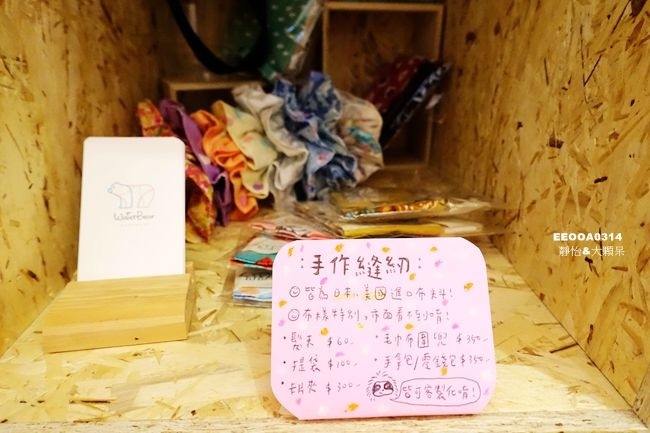 WaterBear
EEOOA0314
靜怡&大顆呆
:手作縫紉:
☺皆為日本、美國進口布料!
☺布樣特別,市面看不到唷!
・髮夾 $60- ・毛巾布圍兜 $350-
・提袋 $100- ・手拿包/零錢包 $350-
・卡夾 $300- 皆可客製化唷!